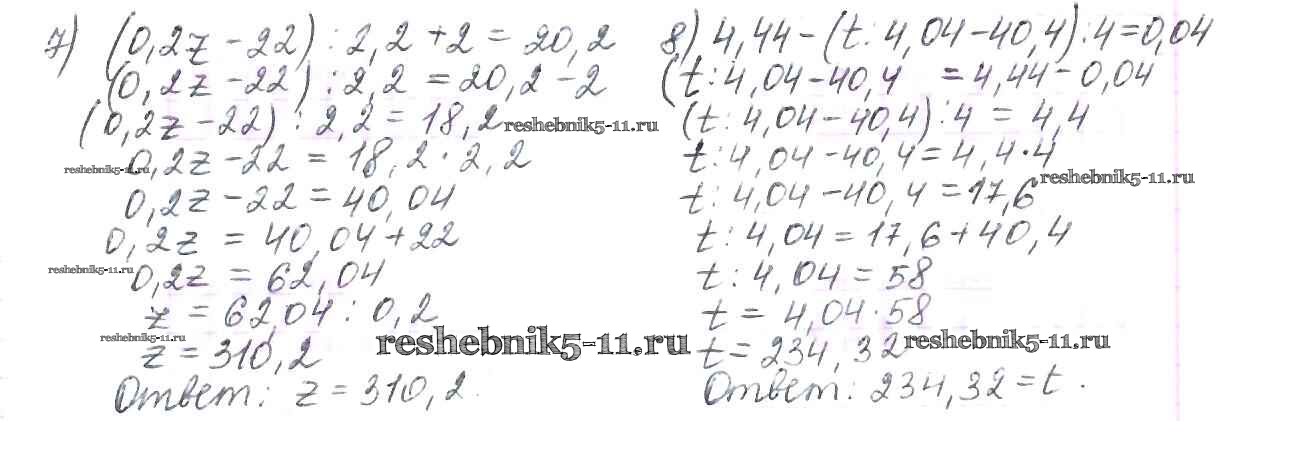 7) (0,2z - 22) : 2,2 + 2 = 20,2
(0,2z - 22) : 2,2 = 20,2 - 2
(0,2z - 22) : 2,2 = 18,2
reshebnik5-11.ru
0,2z - 22 = 18,2 · 2,2
reshebnik5-11.ru
0,2z - 22 = 40,04
0,2z = 40,04 + 22
0,2z = 62,04
reshebnik5-11.ru
z = 62,04 : 0,2
z = 310,2
reshebnik5-11.ru
Ответ: z = 310,2.
reshebnik5-11.ru
8) 4,44 - (t : 4,04 - 40,4) : 4 = 0,04
(t : 4,04 - 40,4 = 4,44 - 0,04
(t : 4,04 - 40,4) : 4 = 4,4
t : 4,04 - 40,4 = 4,4 · 4
reshebnik5-11.ru
t : 4,04 - 40,4 = 17,6
t : 4,04 = 17,6 + 40,4
t : 4,04 = 58
t = 4,04 · 58
t = 234,32
reshebnik5-11.ru
Ответ: 234,32 = t.
reshebnik5-11.ru